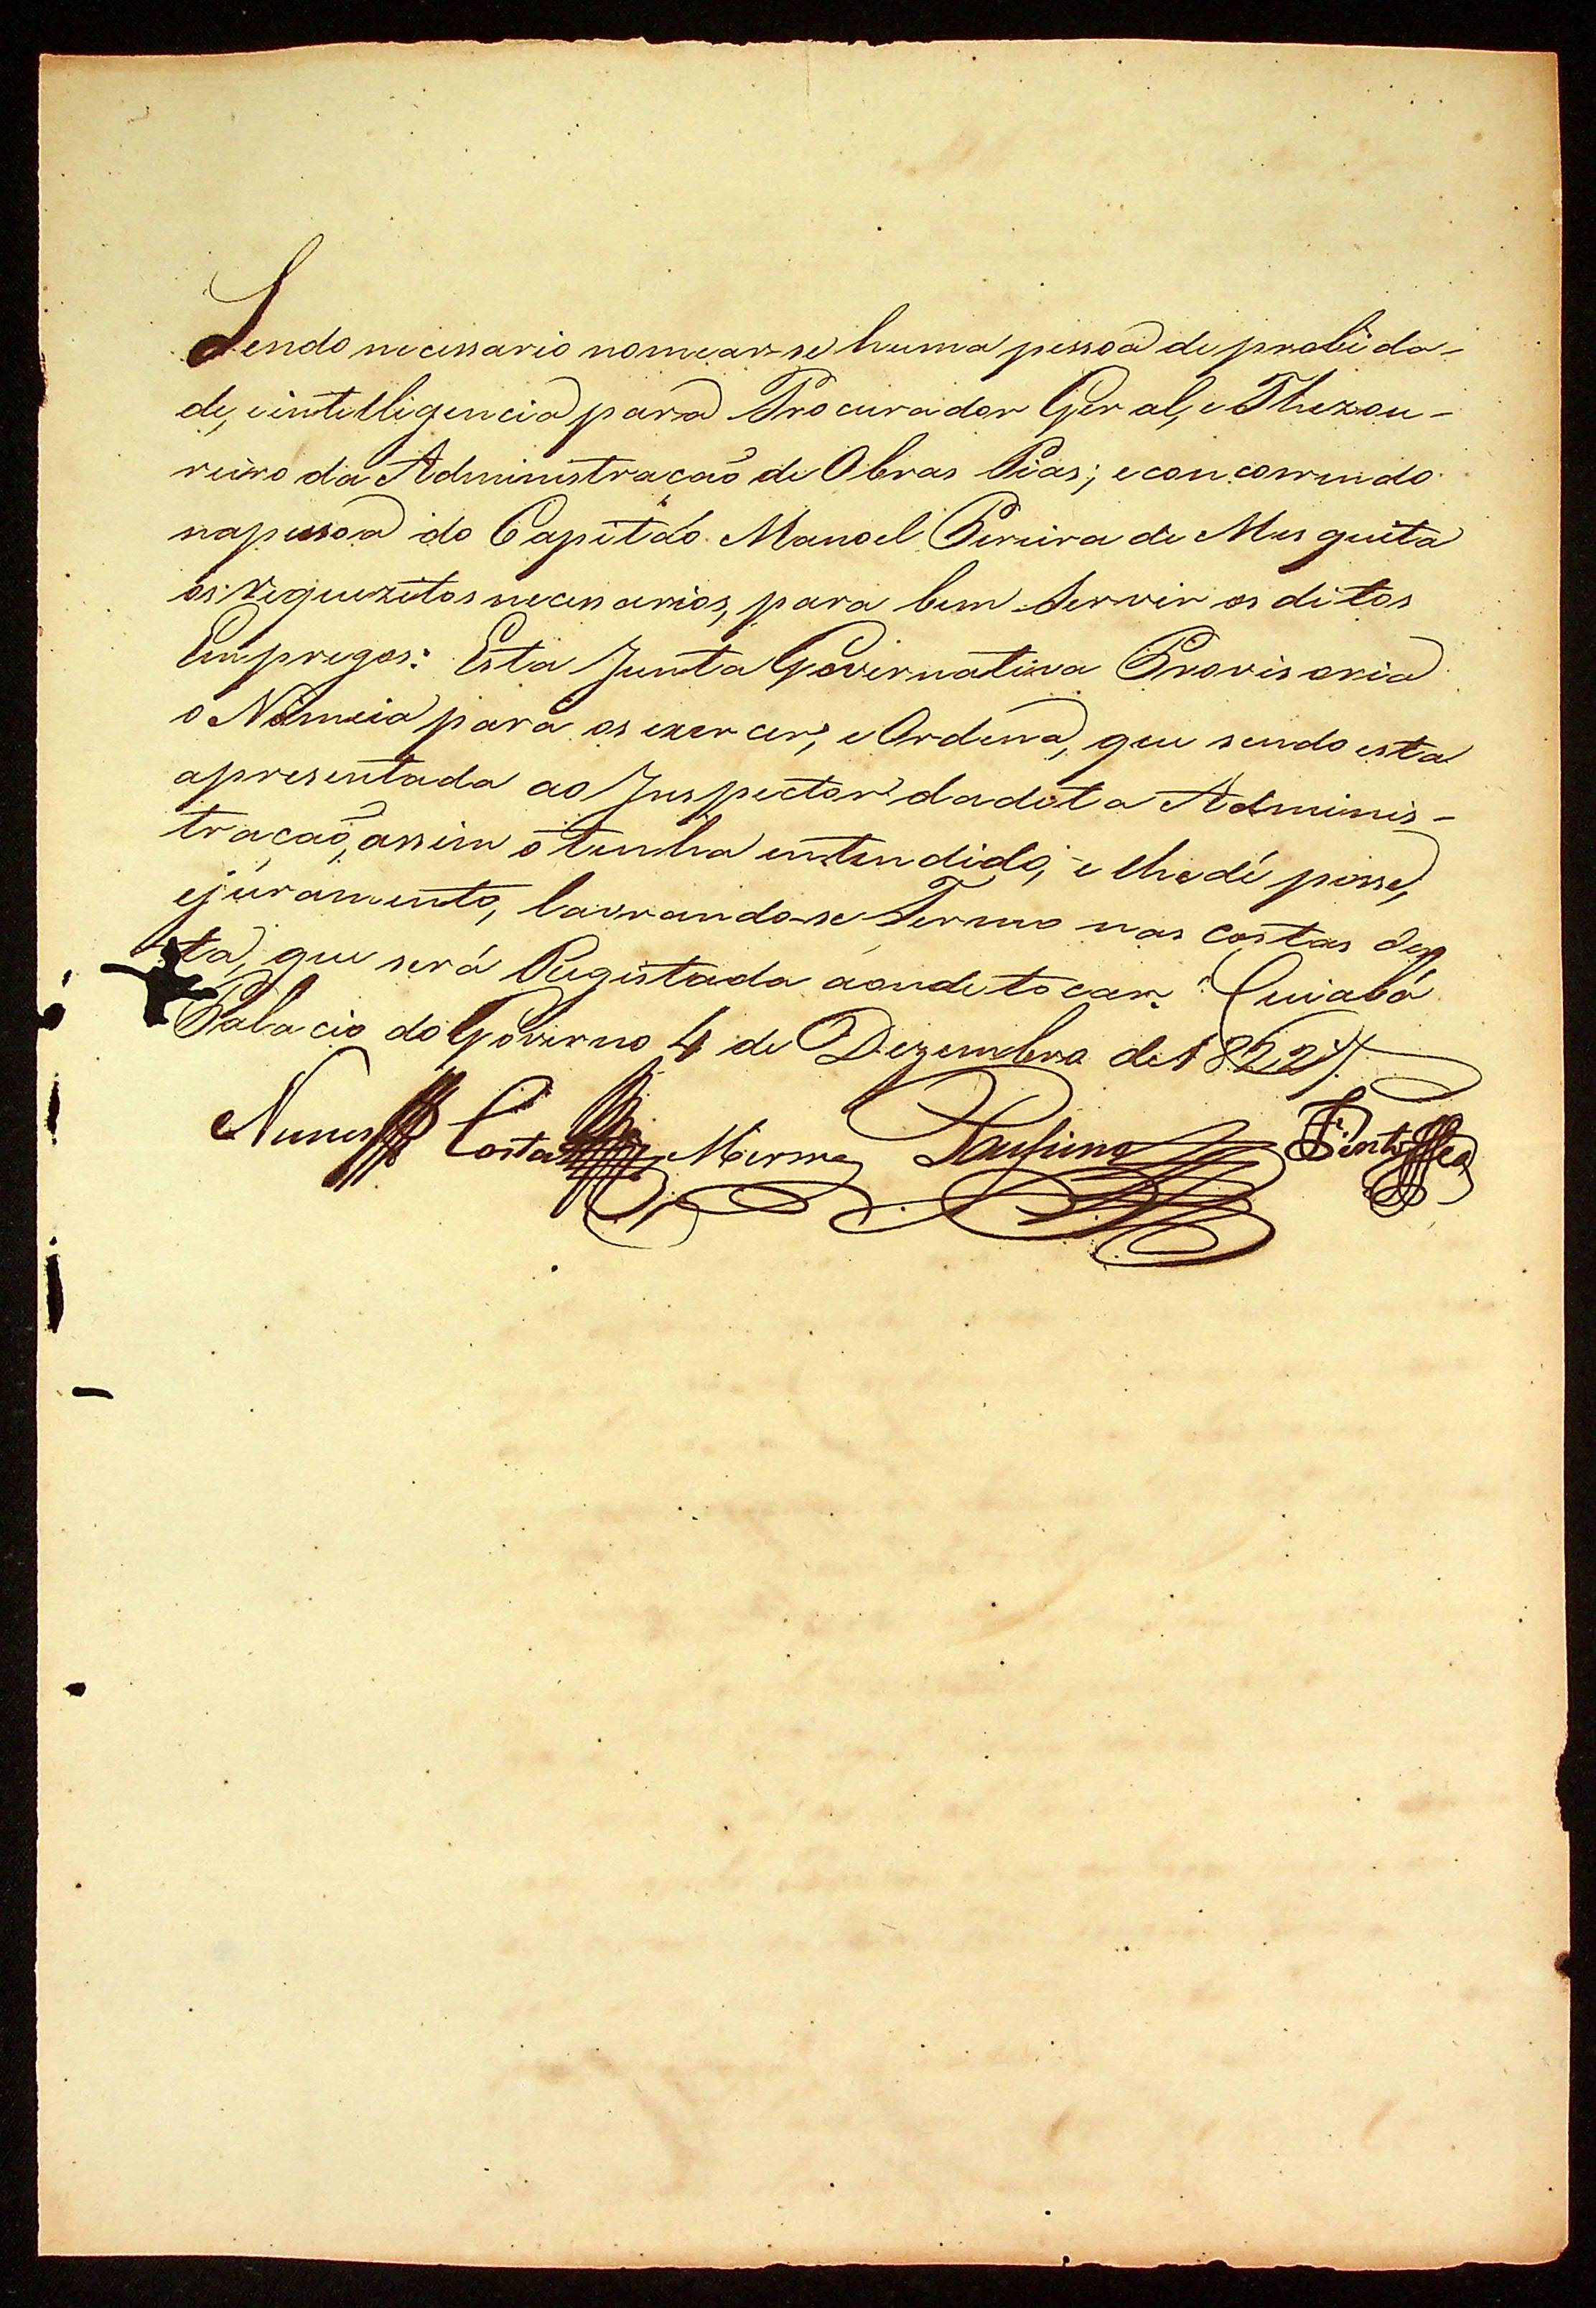 Sendo necessario nomear-se huma pessoa de probida-
de, e intelligencia para Procurador Geral, e Thezou-
reiro da Administração de Obras Pias; e concorrendo
na pessoa do Capitão Manoel Pereira de Mesquita
os requezitos necessarios, para bem servir os ditos
Empregos: Esta Junta Governativa Provisoria
o Nomeia para os exercer, e Ordena, que sendo esta
apresentada ao Inspector da dita Adminis-
tração, assim o tenha entendido, e lhe dê posse,
e juramento, lavrando-se Termo nas costas des
ta, que será Registada aonde tocar. Cuiabá
Palacio do Governo 4 de Dezembro de 1822
Nunes Costa Rufino